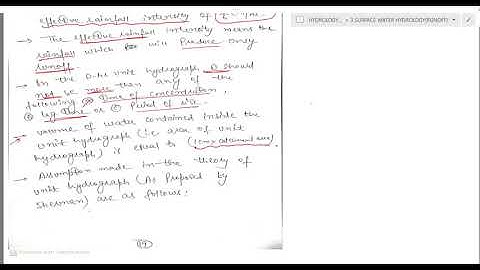 effective rainfall intensity of
→ The effective rainfall intensity means the
rainfall which will Produce only
runoff.
→ In the D-hr unit hydrograph D should
not be more than any of the
following Time of concentration,
lag time or Period of rise.
→ volume of water contained inside the
unit hydrograph (i.e. area of unit
hydrograph) is equal to (1cm×catchment area)
→ Assumption made in the theory of
unit hydrograph (As Proposed by
Sherman) are as follows:
HYDROLOGY... > 3.SURFACE WATER HYDROLOGY(RUNOFF)